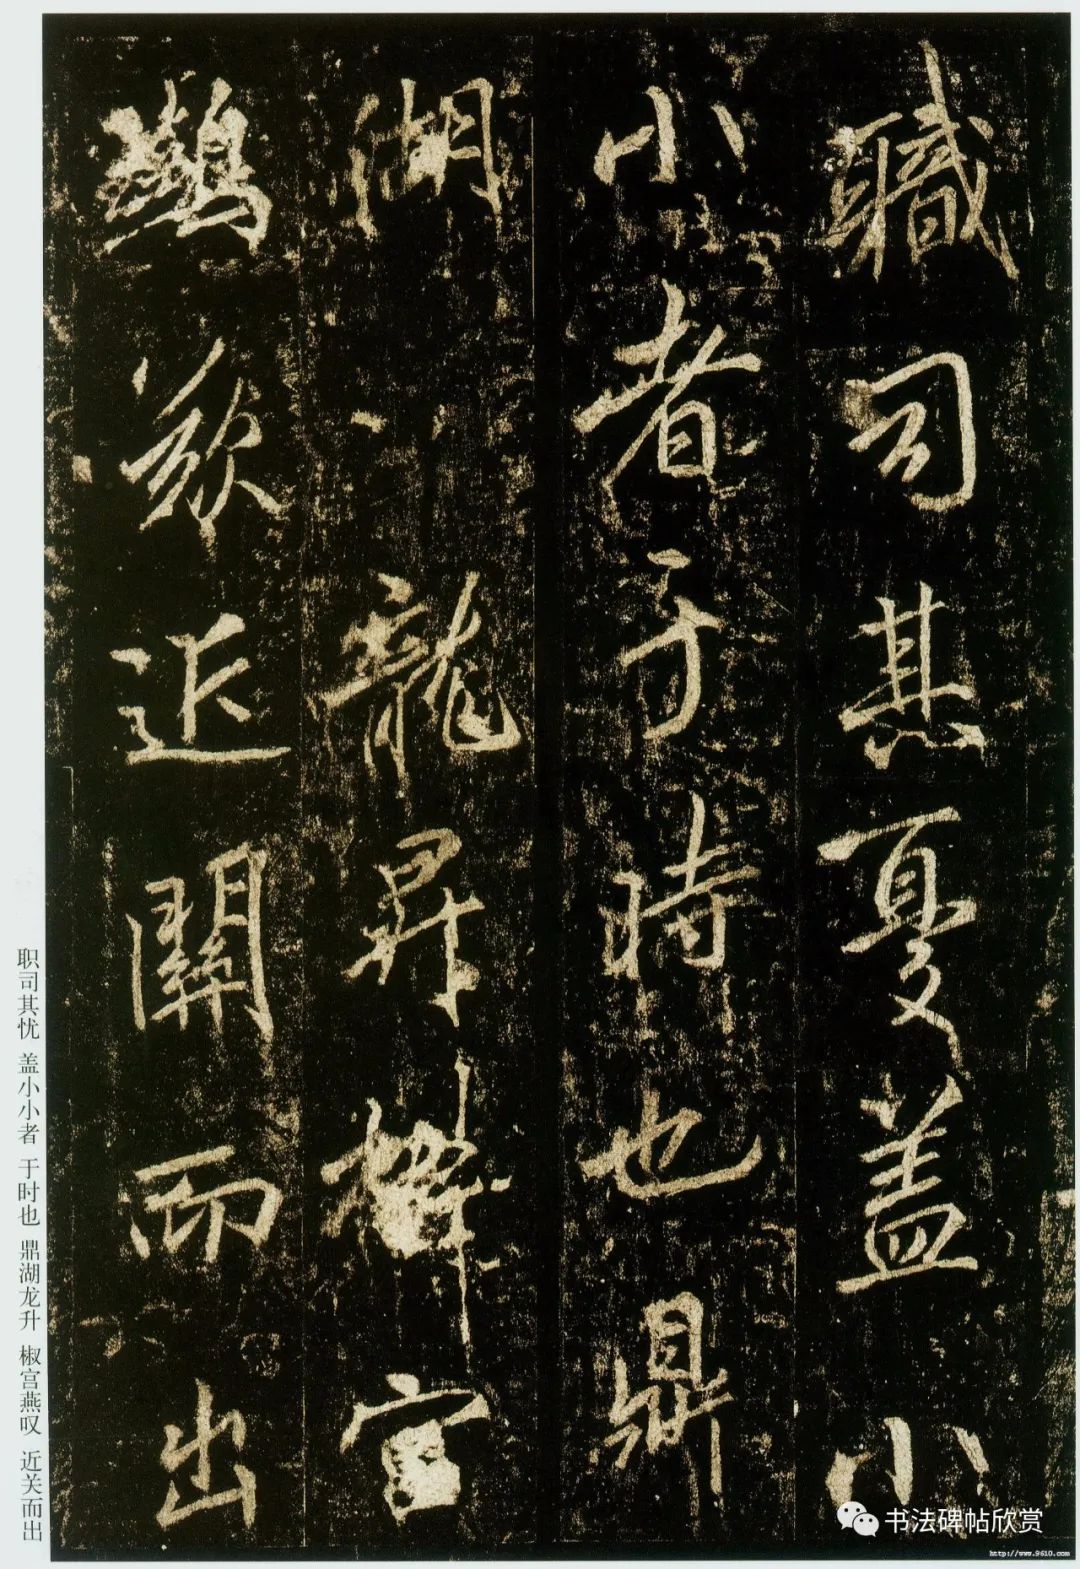 職司其憂蓋小
小者于時也鼎
湖龍昇宮
歎近關而出
职司其忧 盖小小者 于时也 鼎湖龙升 椒宫燕叹 近关而出
书法碑帖欣赏
http://www.9610.com